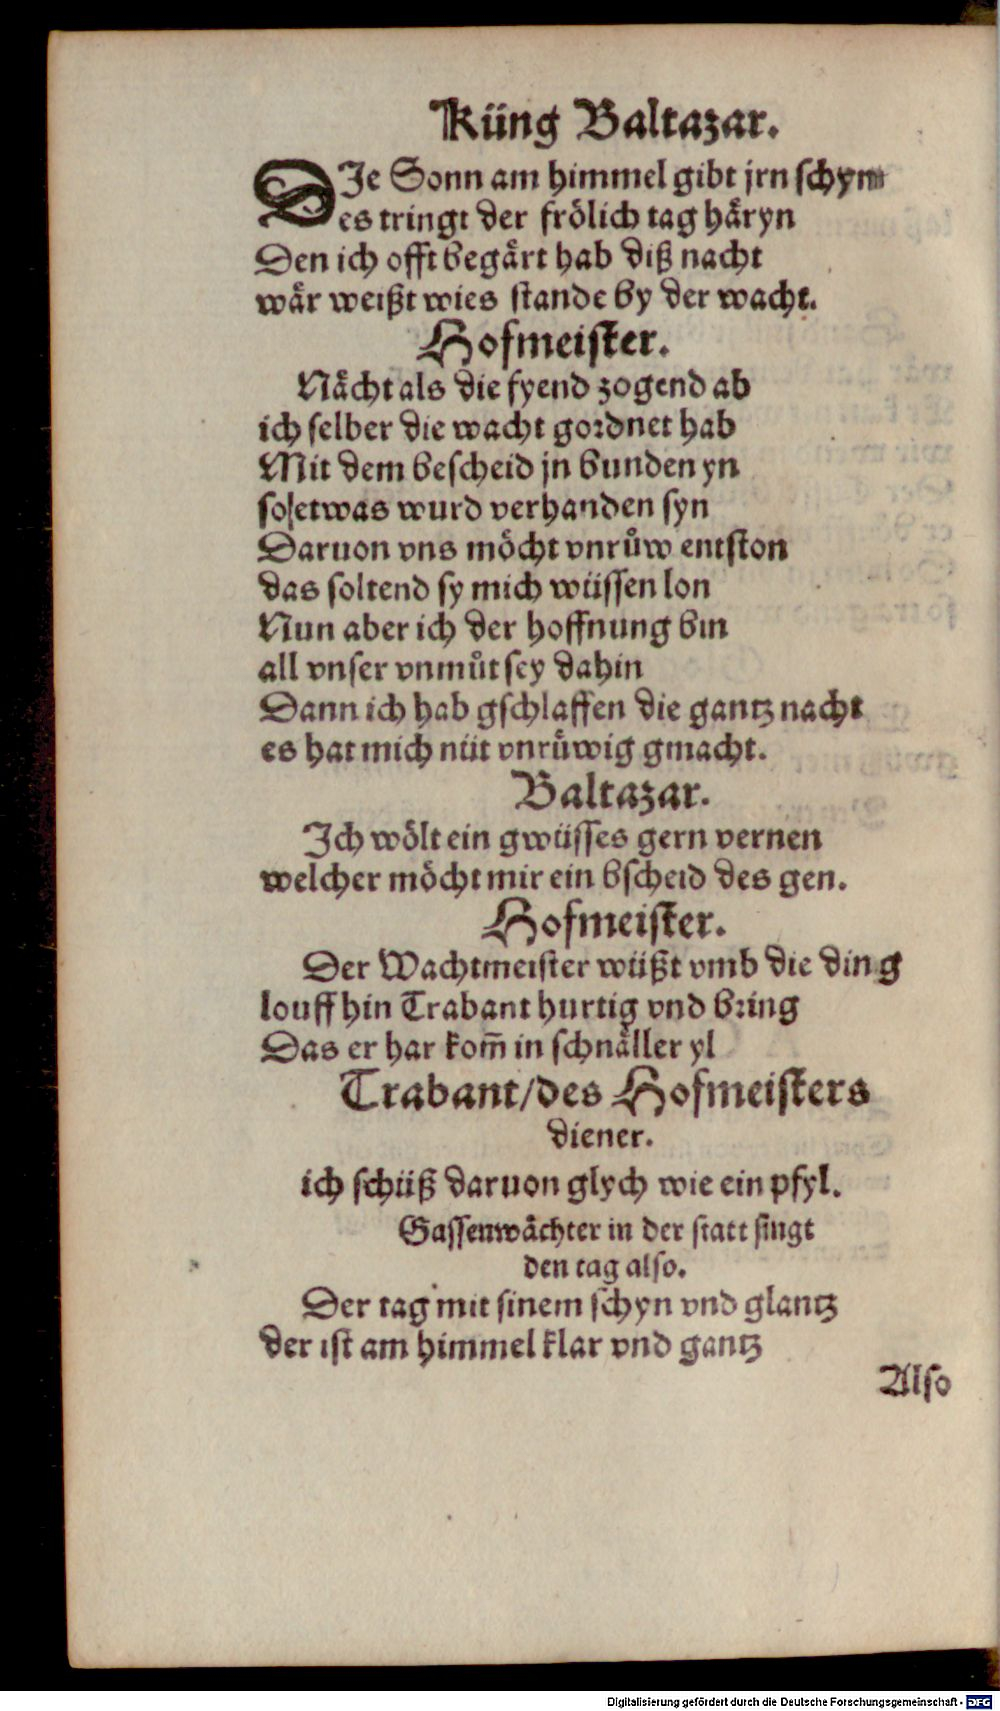 Küng Baltazar.
DJe Sonn am himmel gibt jrn schyn
es tringt der frölich tag häryn
Den ich offt begärt hab diß nacht
wär weißt wies stande by der wacht.
Hofmeister.
Nächt als die fyend zogend ab
ich selber die wacht gordnet hab
Mit dem bescheid jn bunden yn
so etwas wurd verhanden syn
Daruon vns möcht vnrůw entston
das soltend sy mich wüssen lon
Nun aber ich der hoffnung bin
all vnser vnmůt sey dahin
Dann ich hab gschlaffen die gantz nacht
es hat mich nüt vnrüwig gmacht.
Baltazar.
Ich wölt ein gwüsses gern vernen
welcher möcht mir ein bscheid des gen.
Hofmeister.
Der Wachtmeister wüßt vmb die ding
louff hin Trabant hurtig vnd bring
Das er har kom̃ in schnäller yl
Trabant/des Hofmeisters
diener.
ich schüß daruon glych wie ein pfyl.
Gassenwächter in der statt singt
den tag also.
Der tag mit sinem schyn vnd glantz
der ist am himmel klar vnd gantz
Also
Digitalisierung gefördert durch die Deutsche Forschungsgemeinschaft - DFG